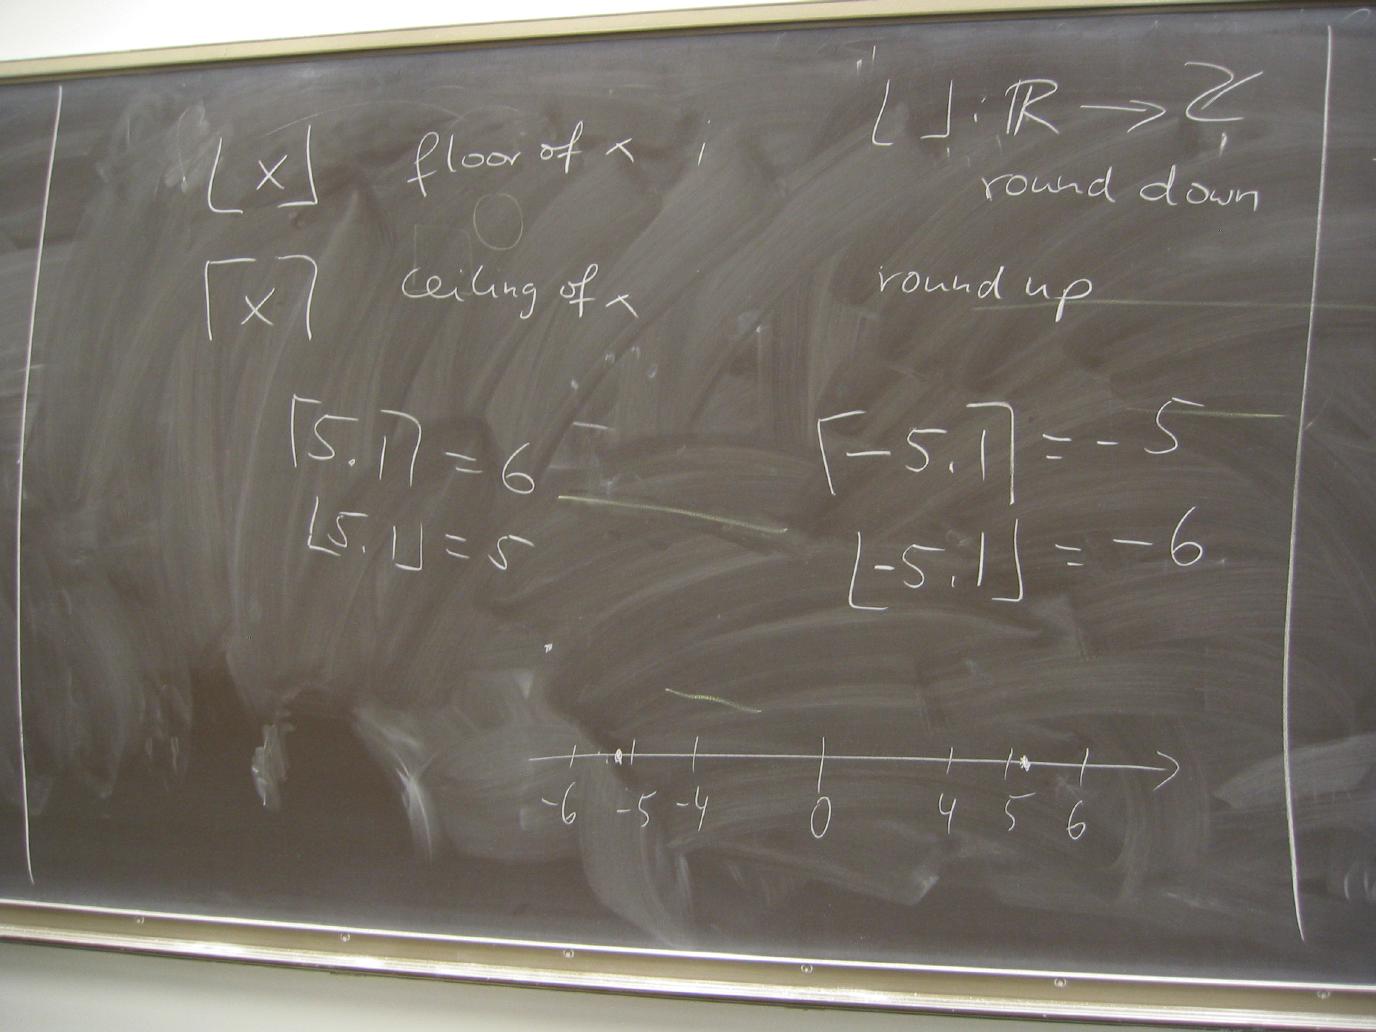 ⌊x⌋ floor of x ; ⌊ ⌋ : ℝ → ℤ
round down
⌈x⌉ ceiling of x round up
⌈5.1⌉ = 6 ⌈-5.1⌉ = -5
⌊5.1⌋ = 5 ⌊-5.1⌋ = -6
-6 -5 -4 0 4 5 6